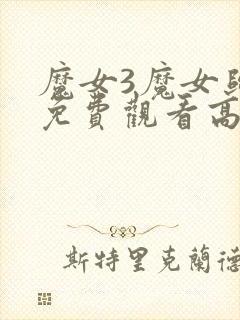 魔女3魔女
免費觀看高
斯特里克蘭德